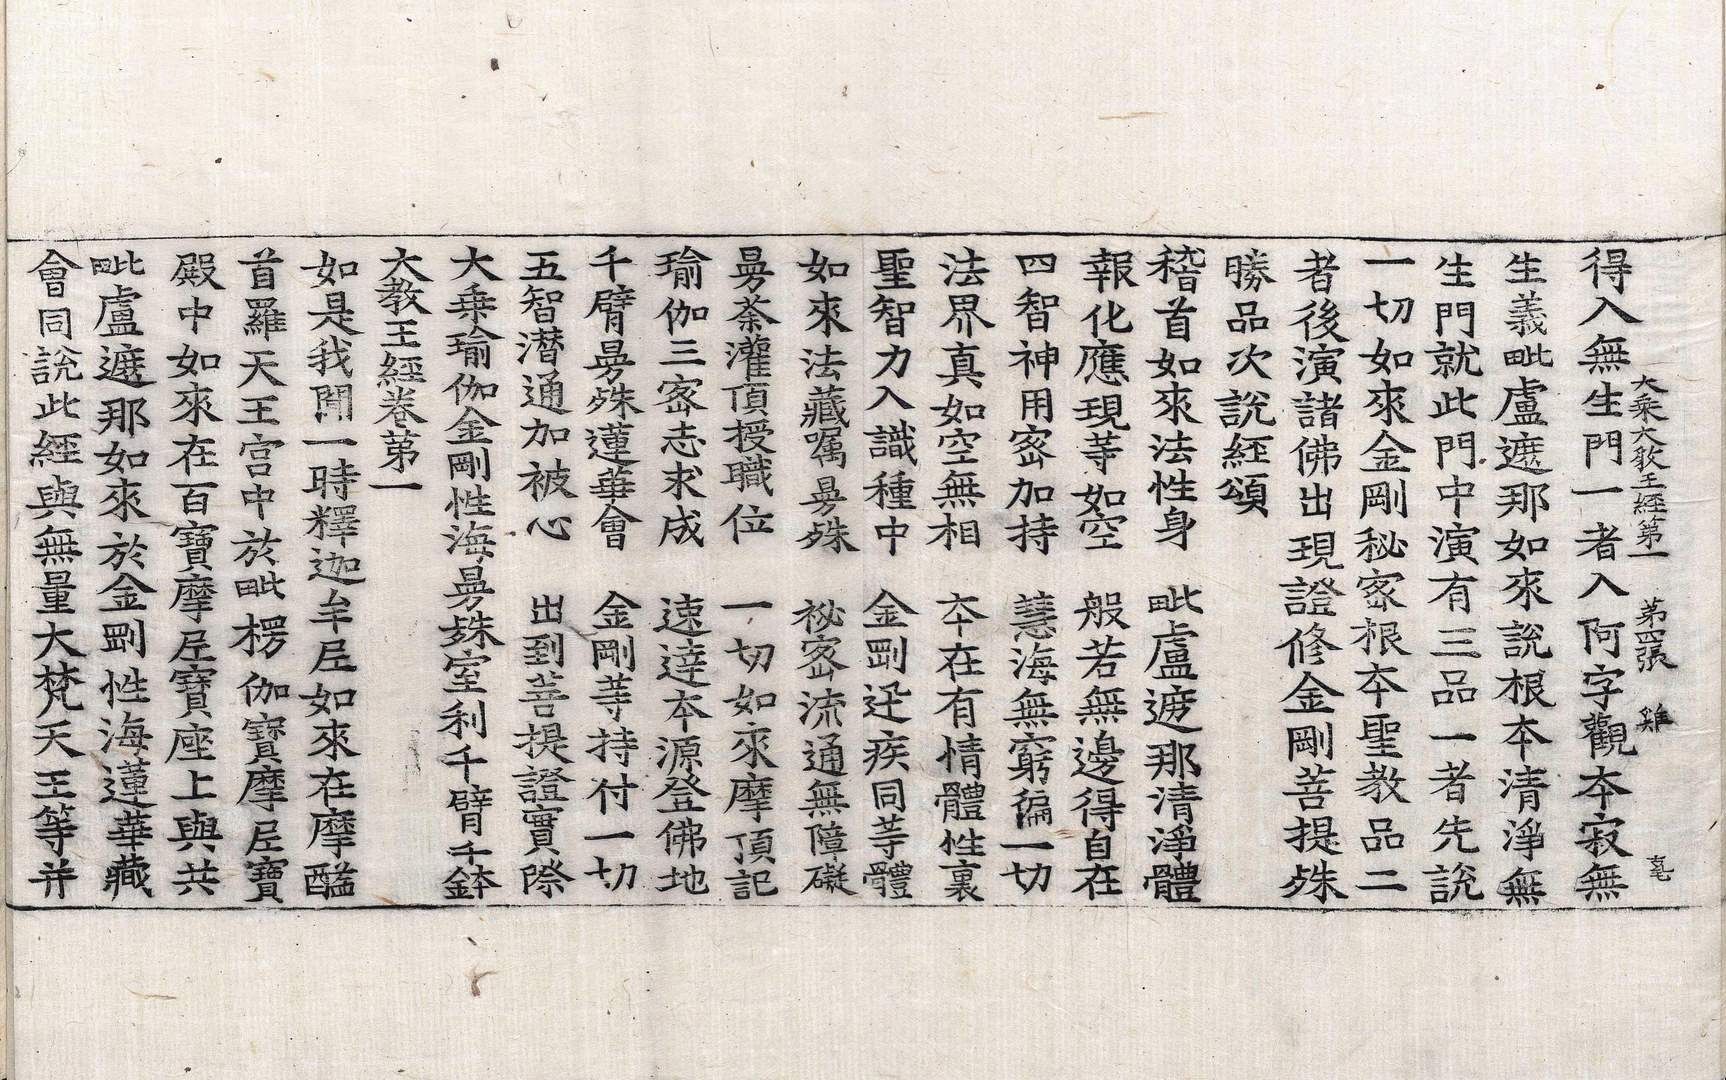 大乘大教王經第一　第四張　雞
得入無生門一者入阿字觀本寂無
生義毗盧遮那如來說根本清淨無
生門就此門中演有三品一者先說
一切如來金剛秘密根本聖教品二
者後演諸佛出現證修金剛菩提殊
勝品次說經頌
稽首如來法性身　毗盧遮那清淨體
報化應現等如空　般若無邊得自在
四智神用密加持　慧海無窮徧一切
法界真如空無相　本在有情體性裏
聖智力入識種中　金剛迅疾同等體
如來法藏囑曼殊　祕密流通無障礙
曼荼灌頂授職位　一切如來摩頂記
瑜伽三密志求成　速達本源登佛地
千臂曼殊蓮華會　金剛等持付一切
五智潜通加被心　出到菩提證實際
大乘瑜伽金剛性海曼殊室利千臂千鉢
大教王經卷第一
如是我聞一時釋迦牟尼如來在摩醯
首羅天王宮中於毗楞伽寶摩尼寶
殿中如來在百寶摩尼寶座上與共
毗盧遮那如來於金剛性海蓮華藏
會同說此經與無量大梵天王等并